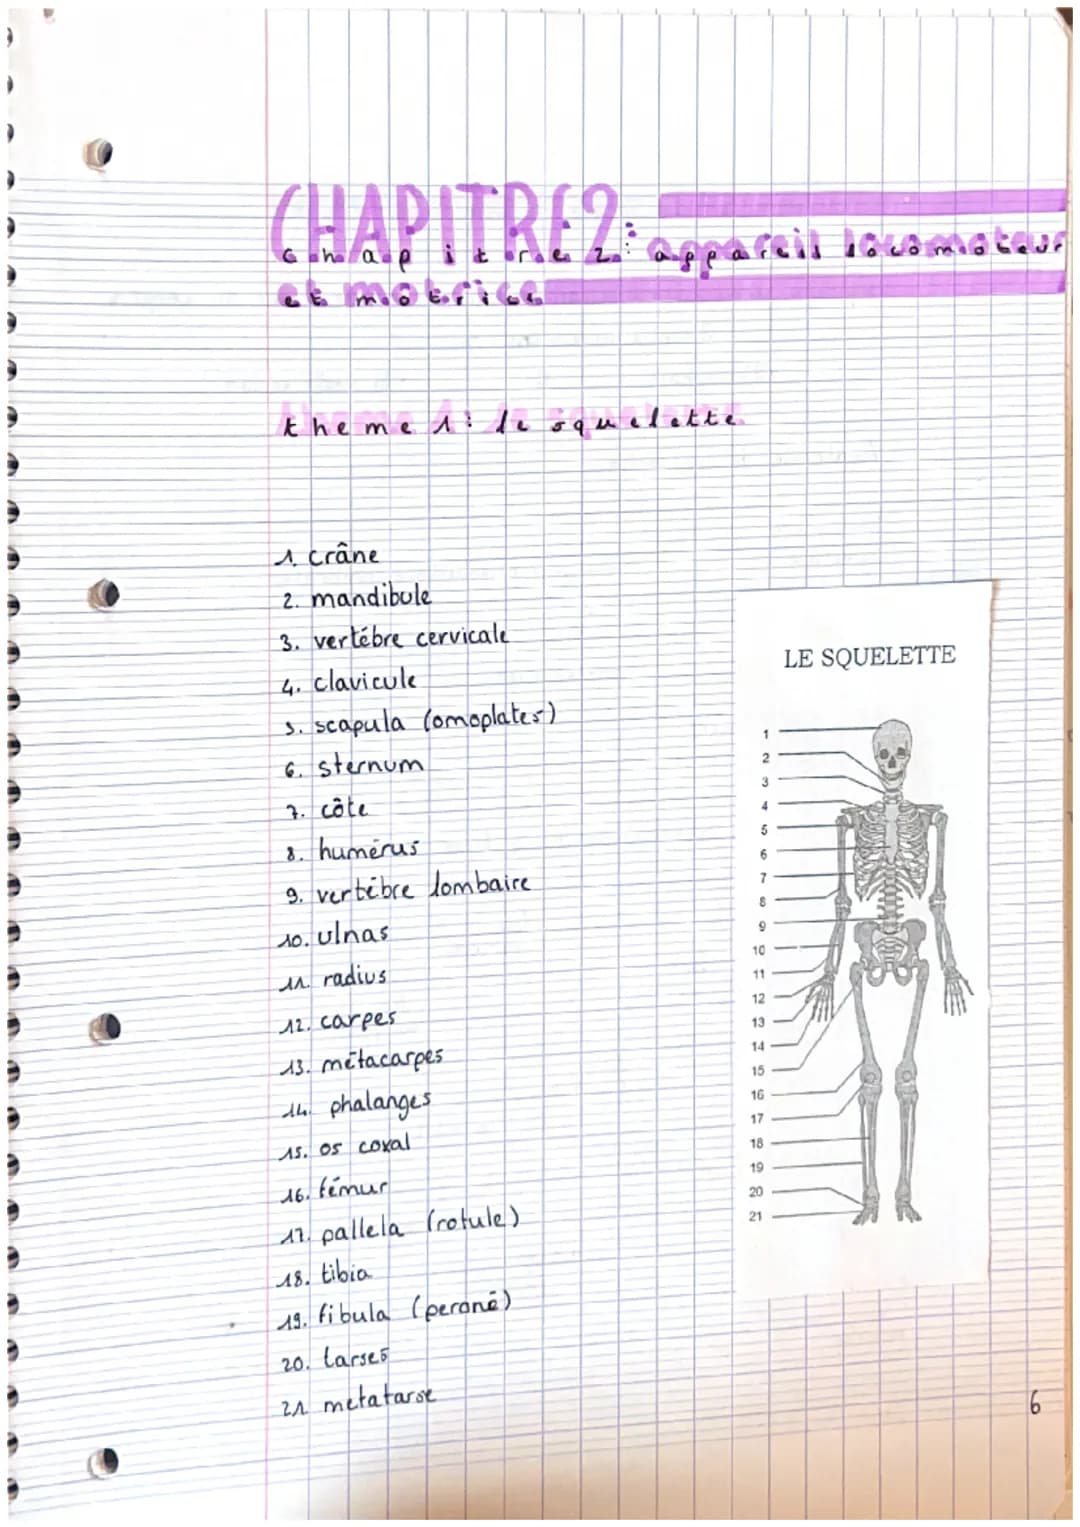 CHAPITRE2:
Chapitre 2: appareil locomoteur
et motrice
theme 1: le squelette
1. crâne
2. mandibule
3. vertébre cervicale
4. clavicule
5. scapula (omoplates)
6. sternum
7. côte
8. humérus
9. vertébre lombaire
10. ulnas
11. radius
12. carpes
13. métacarpes
14. phalanges
15. os coxal
16. fémur
17. pallela (rotule)
18. tibia
19. fibula (peroné)
20. tarses
21 metatarse
LE SQUELETTE
1
2
3
4
5
6
7
8
9
10
11
12
13
14
15
16
17
18
19
20
21
6